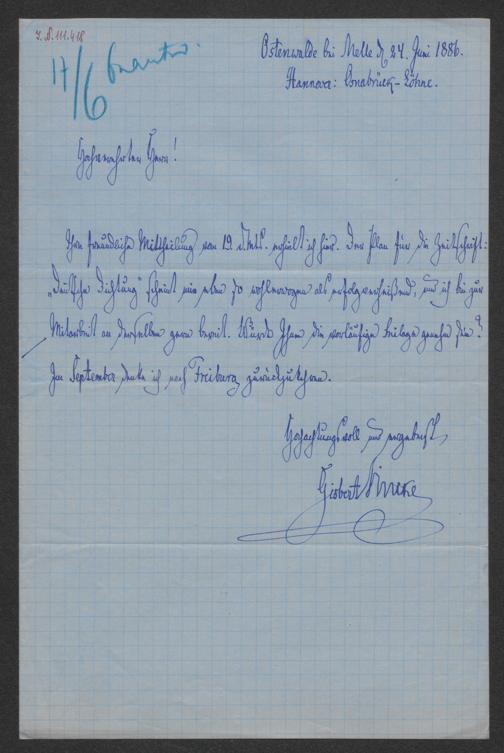 I.N. 111.418
17/6
Ostenwalde bei Melle d. 24. Juni 1886.
Hannover: Osnabrück-Löhne.
Hochverehrter Herr!
Ihre freundliche Mittheilung vom 19. d. Mts. erhielt ich hier. Der Plan für die Zeitschrift:
„Deutsche Dichtung" scheint mir eben so wohlerwogen als erfolgverheißend, und ich bin zur
Mitarbeit an derselben gern bereit. Würde Ihnen die vorläufige Beilage genehm sein?
Im September denke ich nach Freiburg zurückzukehren.
Hochachtungsvoll und ergebenst,
Gisbert Vincke